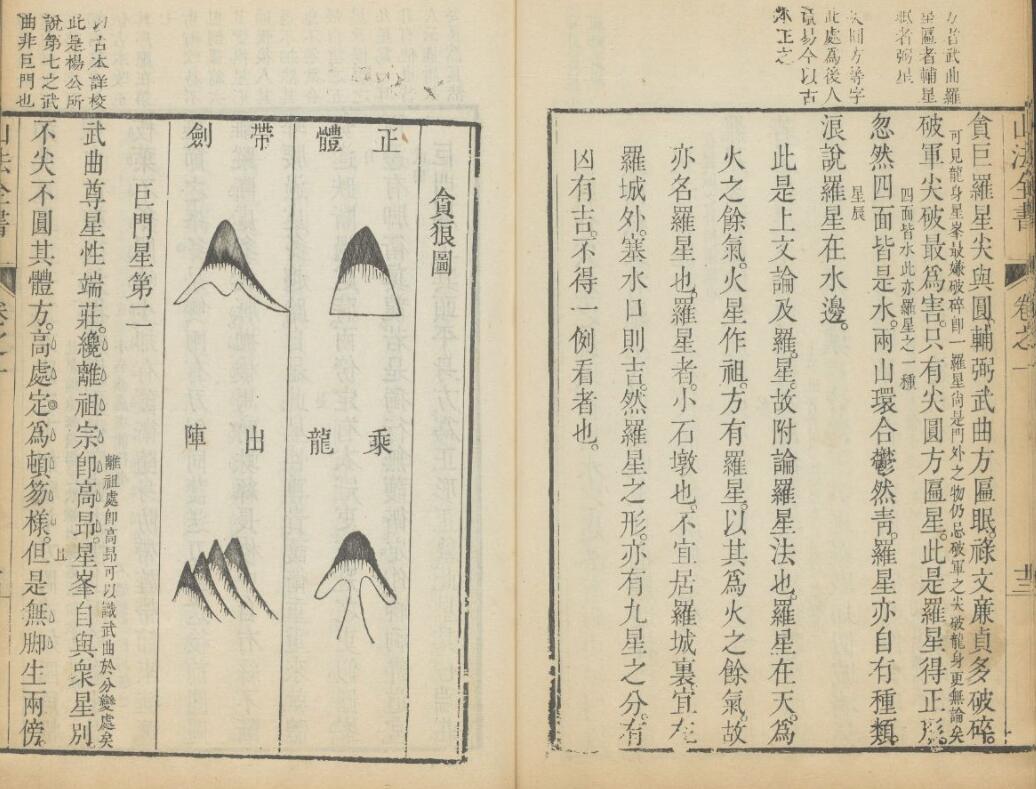 者武曲羅
星匾者輔星
眠者弼星
尖圓方等字
此處為後人
竄易今以古
本正之
山法全書
卷之一
貪巨羅星尖與圓。輔弼武曲方匾眠。祿文廉貞多破碎。
可見龍身星峯最嫌破碎卽一羅星尚是門外之物仍忌破軍之尖破龍身更無論矣
破軍尖破最爲害。只有尖圓方匾星。此是羅星得正形。
四面皆水此亦羅星之一種
忽然四面皆是水。兩山環合鬱然靑。羅星亦自有種類。
星辰
浪說羅星在水邊。
此是上文論及羅星。故附論羅星法也。羅星在天。爲
火之餘氣。火星作祖。方有羅星。以其爲火之餘氣。故
亦名羅星也。羅星者。小石墩也。不宜居羅城裏。宜在
羅城外。塞水口則吉。然羅星之形。亦有九星之分。有
凶有吉。不得一例看者也。
貪狼圖
正體帶劍
乘龍出陣
巨門星第二
武曲尊星性端莊。纔離祖宗卽高昂。星峯自與衆星別。
離祖處卽高昂可以識武曲於分變處矣
不尖不圓其體方。高處定爲頓笏樣。但是無脚生兩傍。
古本詳校
此是楊公所
說第七之武
曲非巨門也
山法全書
卷之一